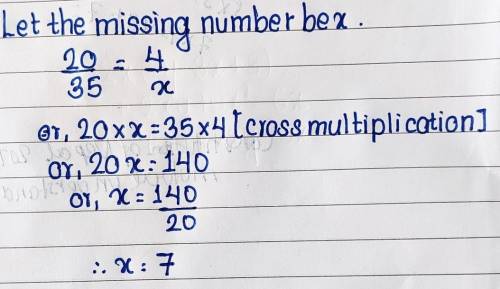 Let the missing number be x.
20/35 = 4/x
or, 20×x=35×4 [cross multiplication]
or, 20x=140
or, x=140/20
∴ x=7